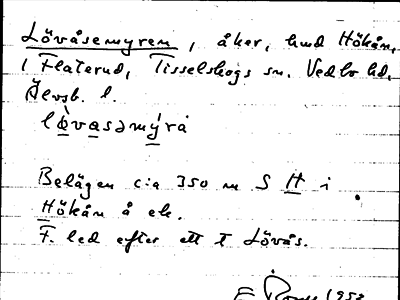 Lövåsemyren, åker, hmd Hökån,
1 Flaterud, Tisselskogs sn. Vedbo hd,
Älvsb. l.
lò̤vasəmýra
Belägen c:a 350 m S H i
Hökån å ek.
F. led efter ett † Lövås.
1953